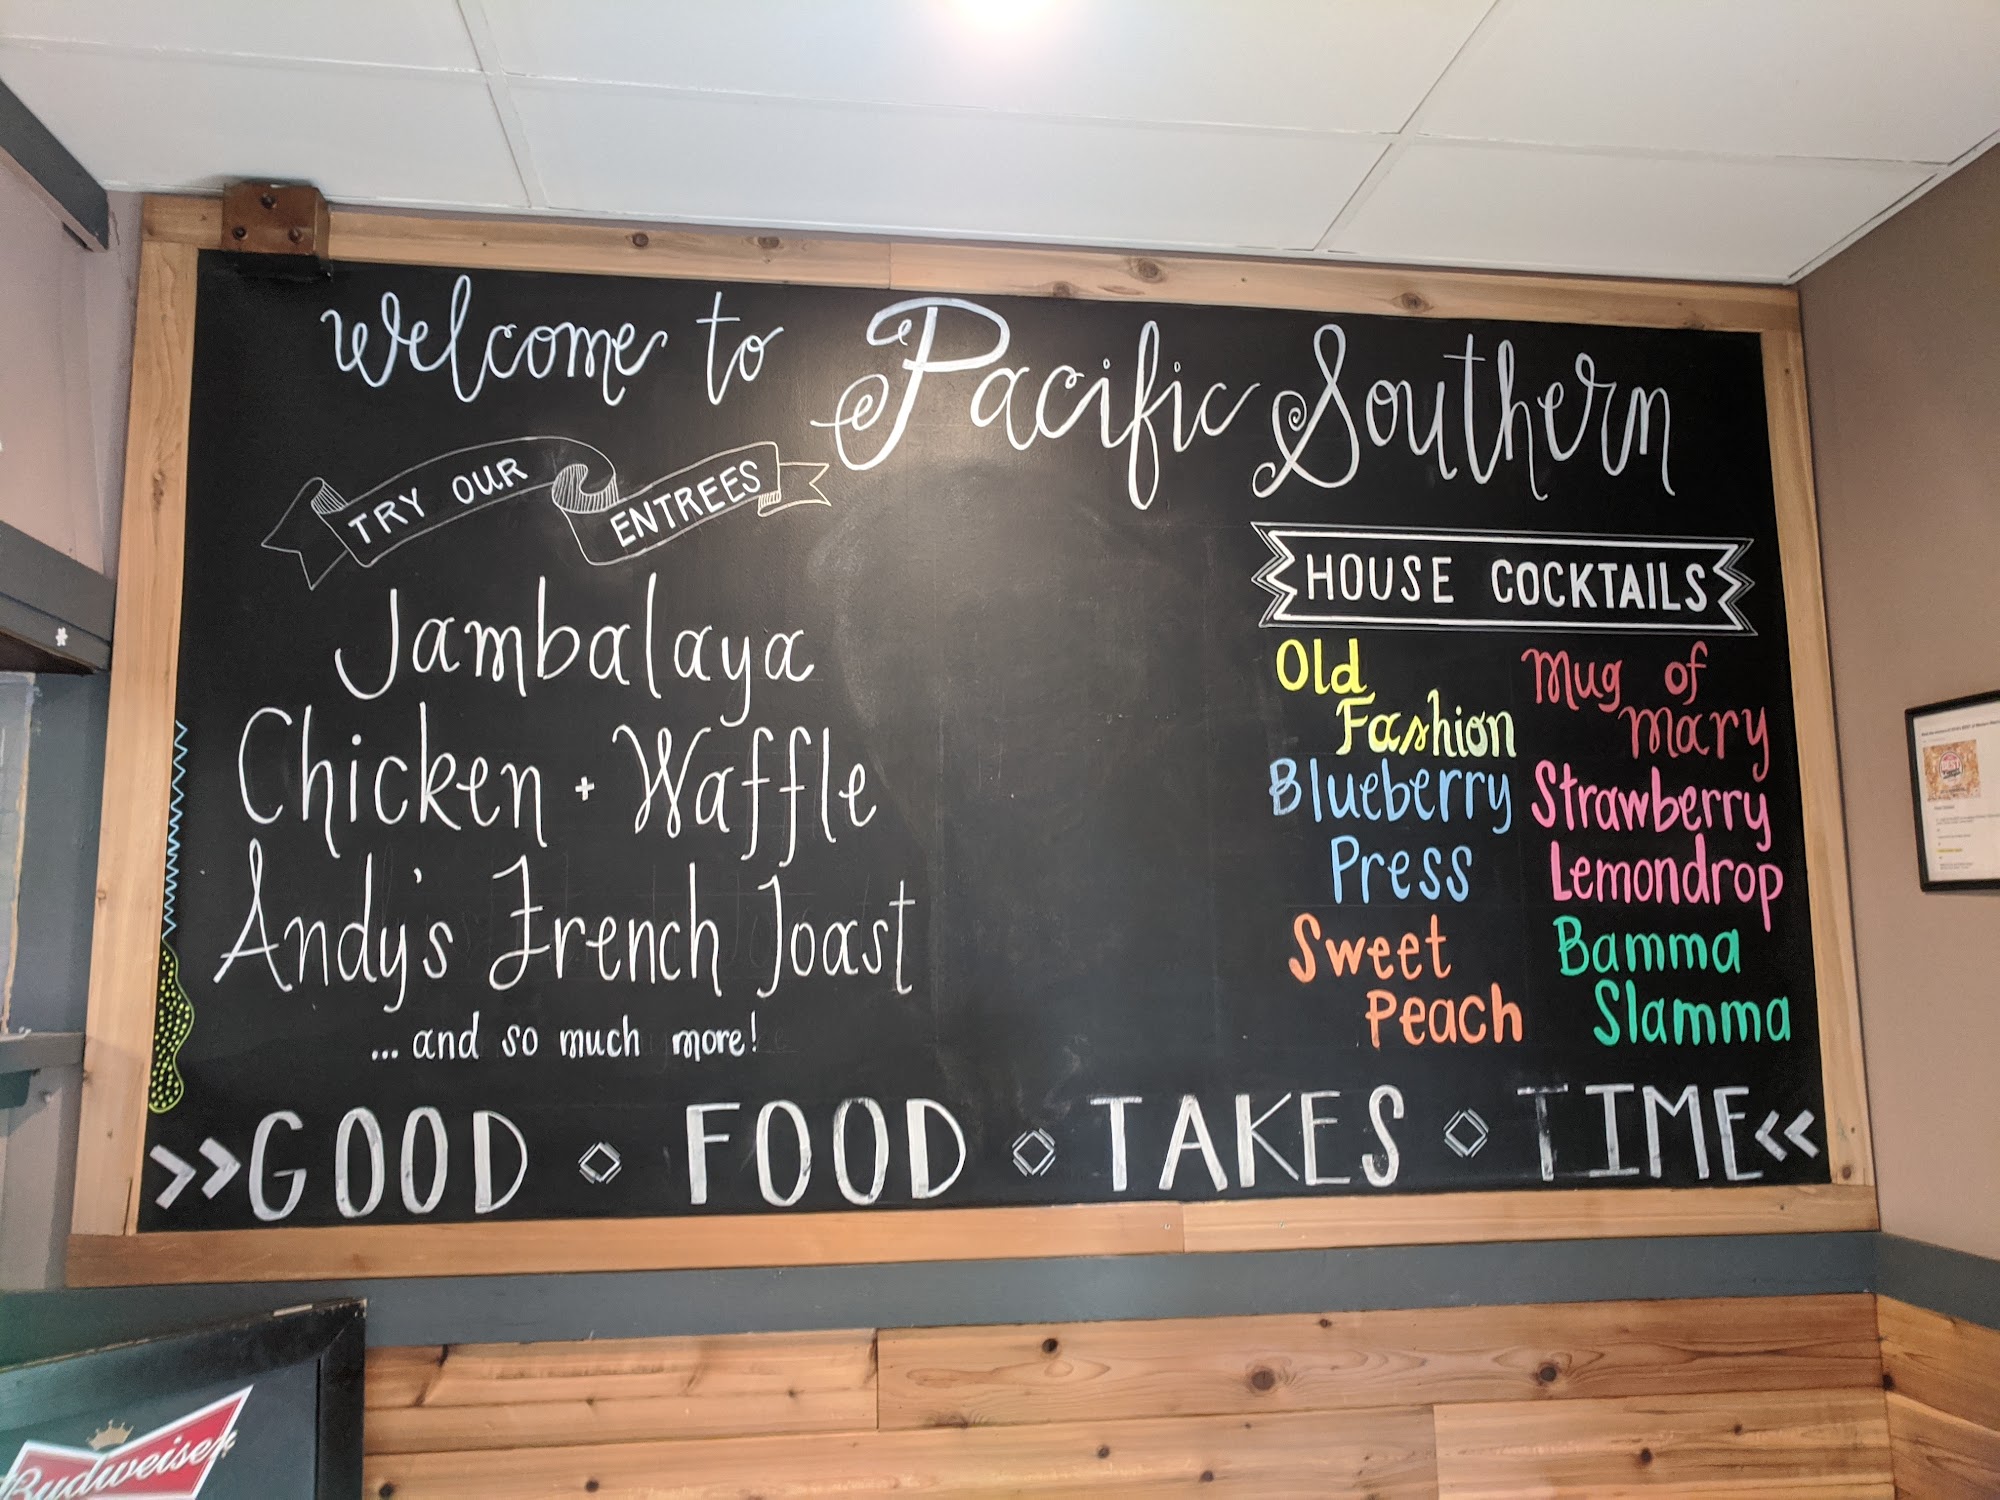 Welcome to Pacific Southern
TRY OUR ENTREES
Jambalaya
Chicken + Waffle
Andy's French Toast
... and so much more!
HOUSE COCKTAILS
Old
Fashion
Mug of
Mary
Blueberry
Press
Strawberry
Lemondrop
Sweet
Peach
Bamma
Slamma
>>GOOD FOOD TAKES TIME<<
Budweiser